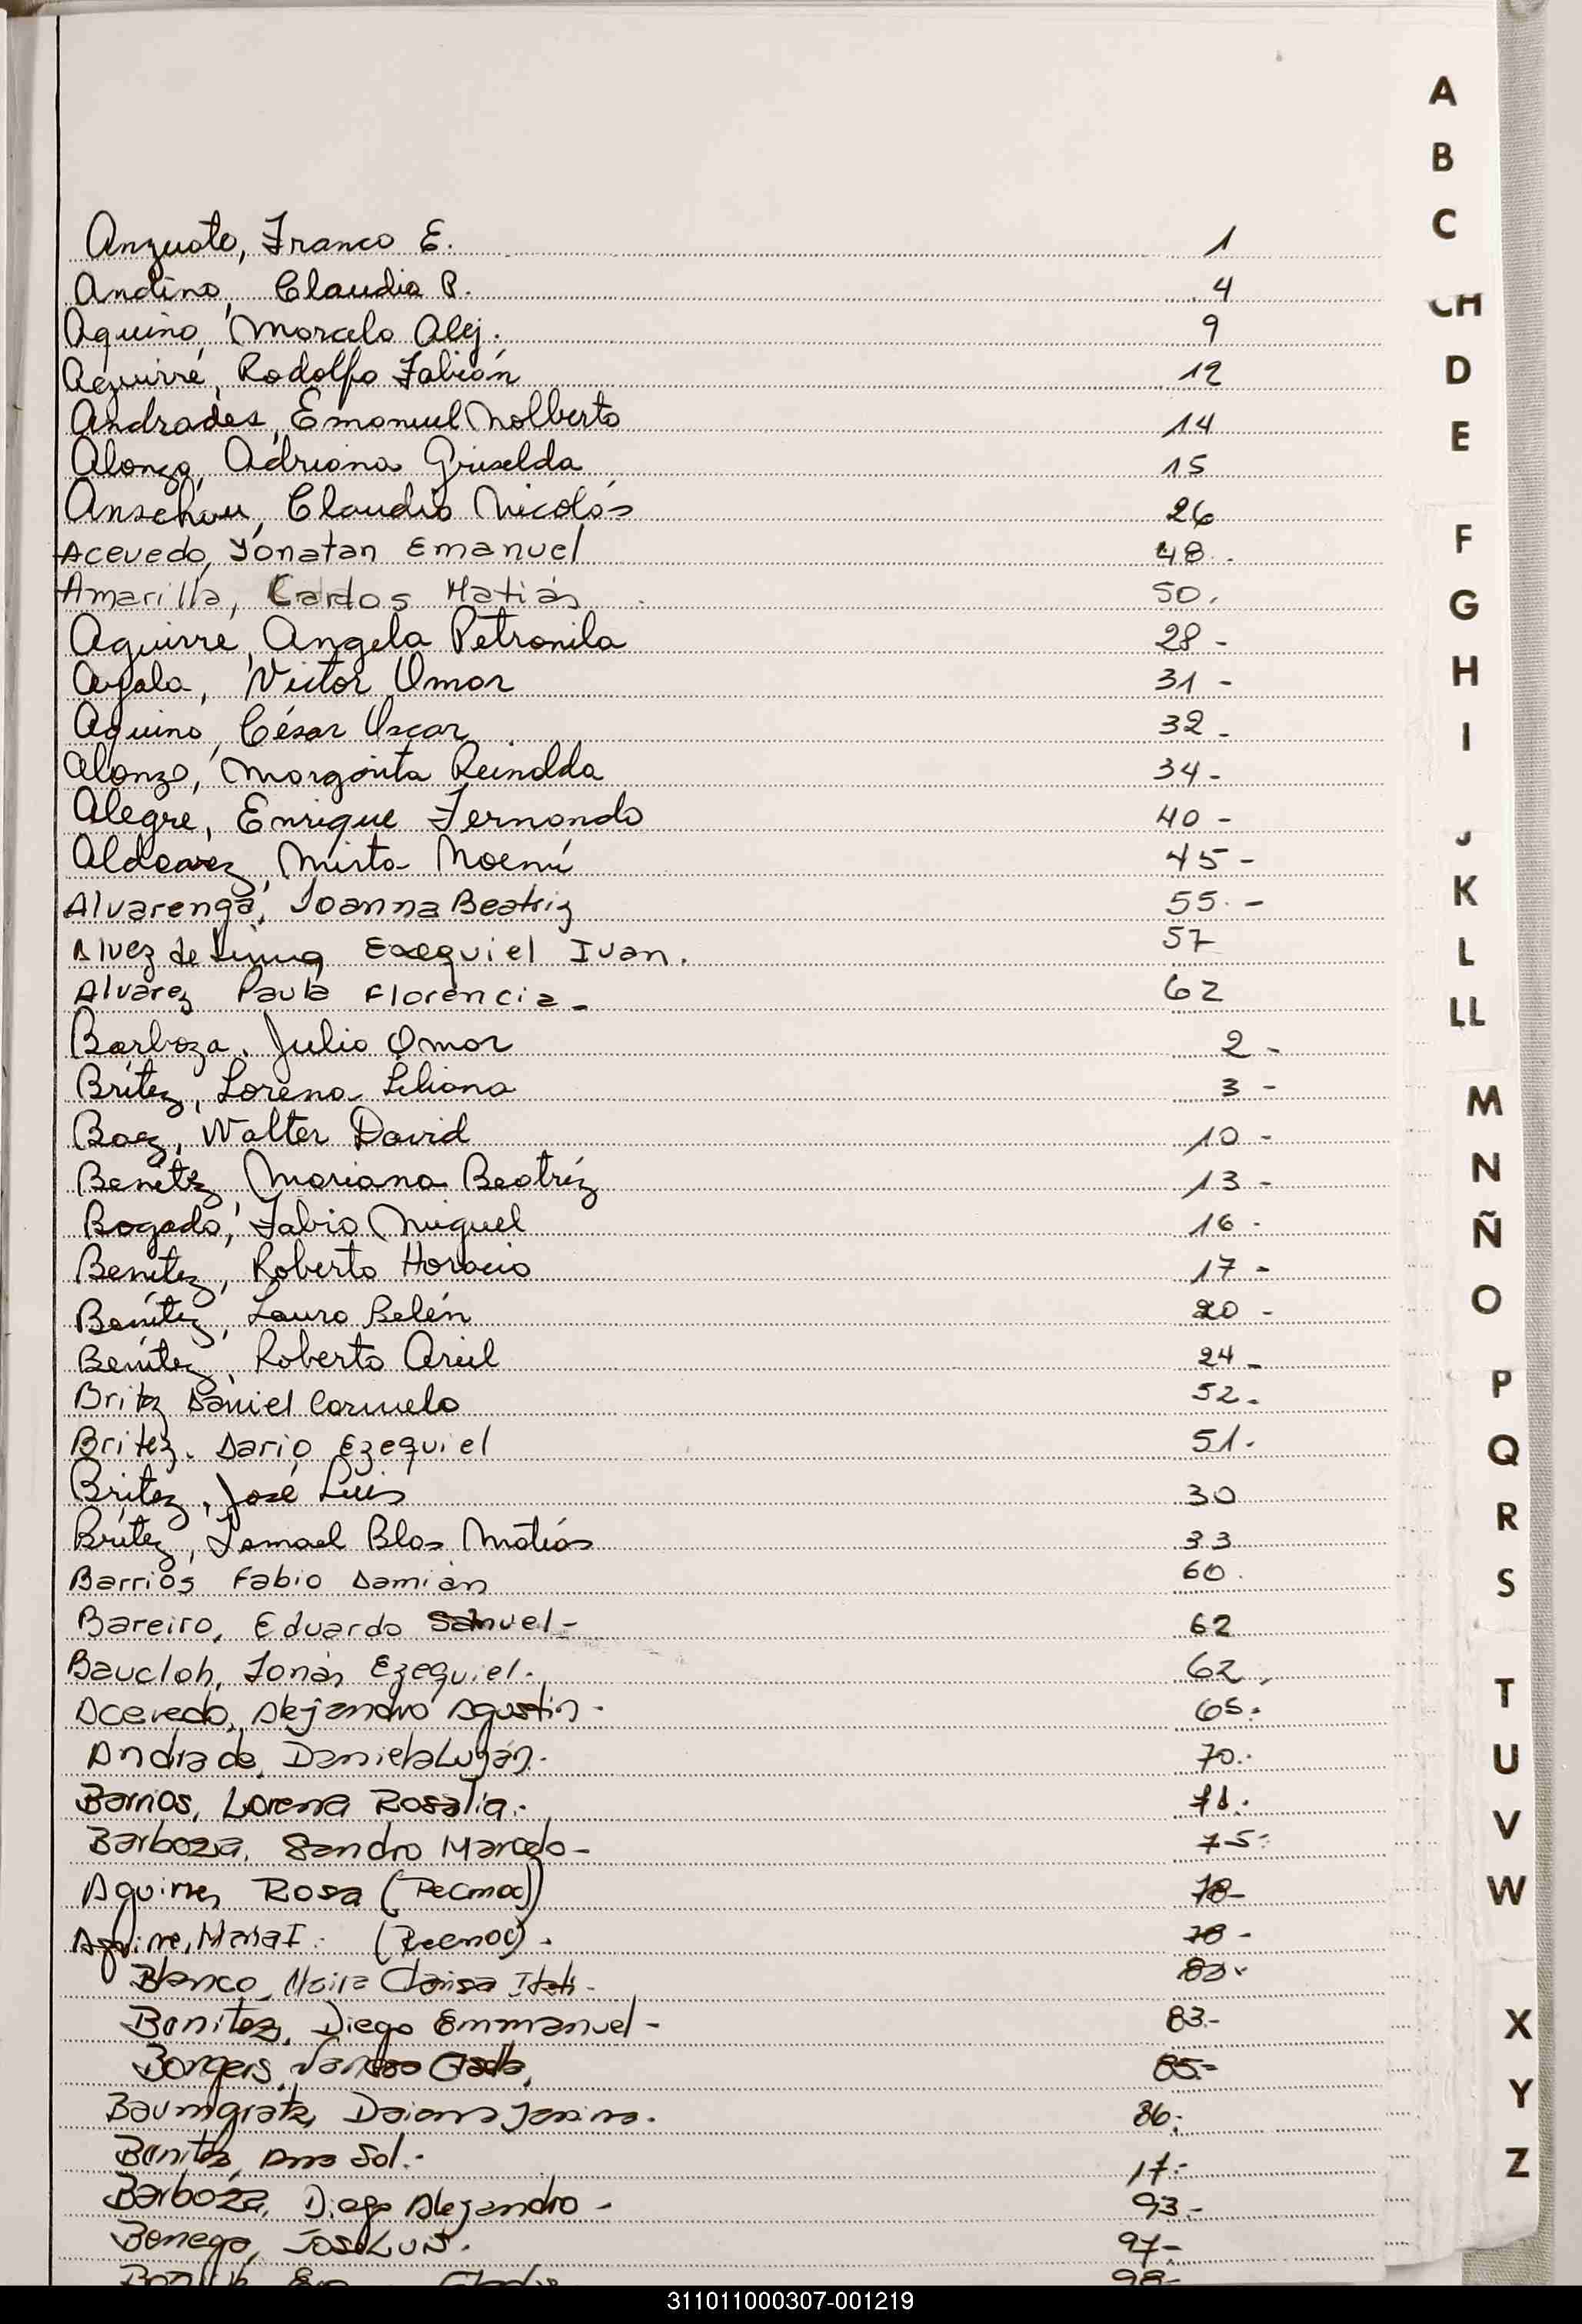 Anzuate, Franco E. 1
Andino, Claudia P. 4
Aquino, Marcelo Alej. 9
Aguirre, Rodolfo Fabián 12
Andrades, Emanuel Nolberto 14
Alonzo, Adriana Griselda 15
Anschau, Claudio Nicolás 26
Acevedo, Yonatan Emanuel 48.
Amarilla, Carlos Matías 50.
Aguirre, Angela Petronila 28 -
Ayala, Victor Omar 31 -
Aquino, César Oscar 32 -
Alonzo, Margarita Reinalda 34 -
Alegre, Enrique Fernando 40 -
Mirta Noemí 45 -
Alvarenga, Joanna Beatriz 55. -
Alvez de Exequiel Ivan. 57
Alvarez Paula Florencia - 62
Barboza, Julio Omar 2 -
Britez, Lorena Liliana 3 -
Baez, Walter David 10 -
Benítez, Mariana Beatríz 13 -
Bogado, Fabio Miguel 16 -
Benítez, Roberto Horacio 17 -
Benítez, Laura Belén 20 -
Benítez, Roberto Ariel 24 -
Britez Daniel Carmelo 52.
Britez. Dario Ezequiel 51.
Britez, José Luis 30
Britez, Ismael Blas Matías 33
Barrios Fabio Damián 60.
Bareiro, Eduardo Samuel - 62
Baucloh, Jonás Ezequiel. 62
Acevedo, Alejandro Agustín - 65.
Andrade, Daniela Luján. 70.
Barrios, Lorena Rosalia. 71.
Barboza, Sandro Marcelo - 75
Aguirre, Rosa (Recnoc) 78 -
Aguirre, Maria I. (Recnoc). 78 -
Blanco, Itati -
Benitez, Diego Emmanuel - 83.-
Borgers, 85.-
Baumgratz, Daiana Janina. 86.
Benitez, Ana Sol.- 17.-
Barboza, Diego Alejandro - 93.-
Benega, José Luis. 97-
98-
A
B
C
CH
D
E
F
G
H
I
J
K
L
LL
M
N
Ñ
O
P
Q
R
S
T
U
V
W
X
Y
Z
311011000307-001219